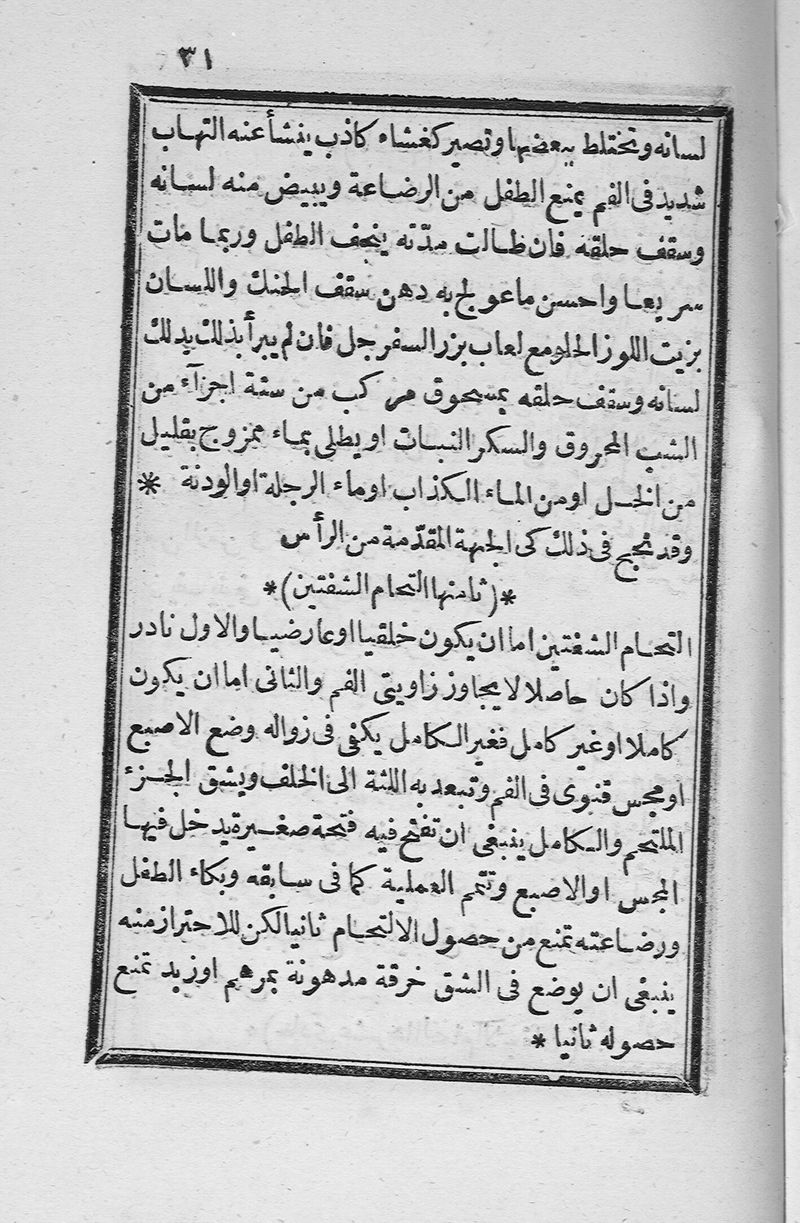 ٣١
لسانه وتختلط ببعضها وتصير كغشاء كاذب ينشأ عنه التهاب
شديد فى الفم يمنع الطفل من الرضاعة ويبيض منه لسانه
وسقف حلقه فان طالت مدّته ينحف الطفل وربما مات
سريعا واحسن ما عولج به دهن سقف الحنك واللسان
بزيت اللوز الحلو مع لعاب بزر السفرجل فان لم يبرأ بذلك يدلك
لسانه وسقف حلقه بمسحوق مركب من ستة اجزآء من
الشب المحروق والسكر النبات او يطلى بماء ممزوج بقليل
من الخل او من الماء الكذاب او ماء الرجلة او الودنة *
وقد نجح فى ذلك كى الجهة المقدّمة من الرأس
*(ثامنها التحام الشفتين)*
التحام الشفتين اما ان يكون خلقيا او عارضيا والاول نادر
واذا كان حاصلا لا يجاوز زاويتى الفم والثانى اما ان يكون
كاملا او غير كامل فغير الكامل يكفى فى زواله وضع الاصبع
او مجس قنوى فى الفم وتبعد به اللثة الى الخلف ويشق الجزء
الملتحم والكامل ينبغى ان تفتح فيه فتحة صغيرة يدخل فيها
المجس او الاصبع وتتمم العملية كما فى سابقه وبكاء الطفل
ورضاعته تمنع من حصول الالتحام ثانيا لكن للاحتراز منه
ينبغى ان يوضع فى الشق خرقة مدهونة بمرهم او زبد تمنع
حصوله ثانيا *